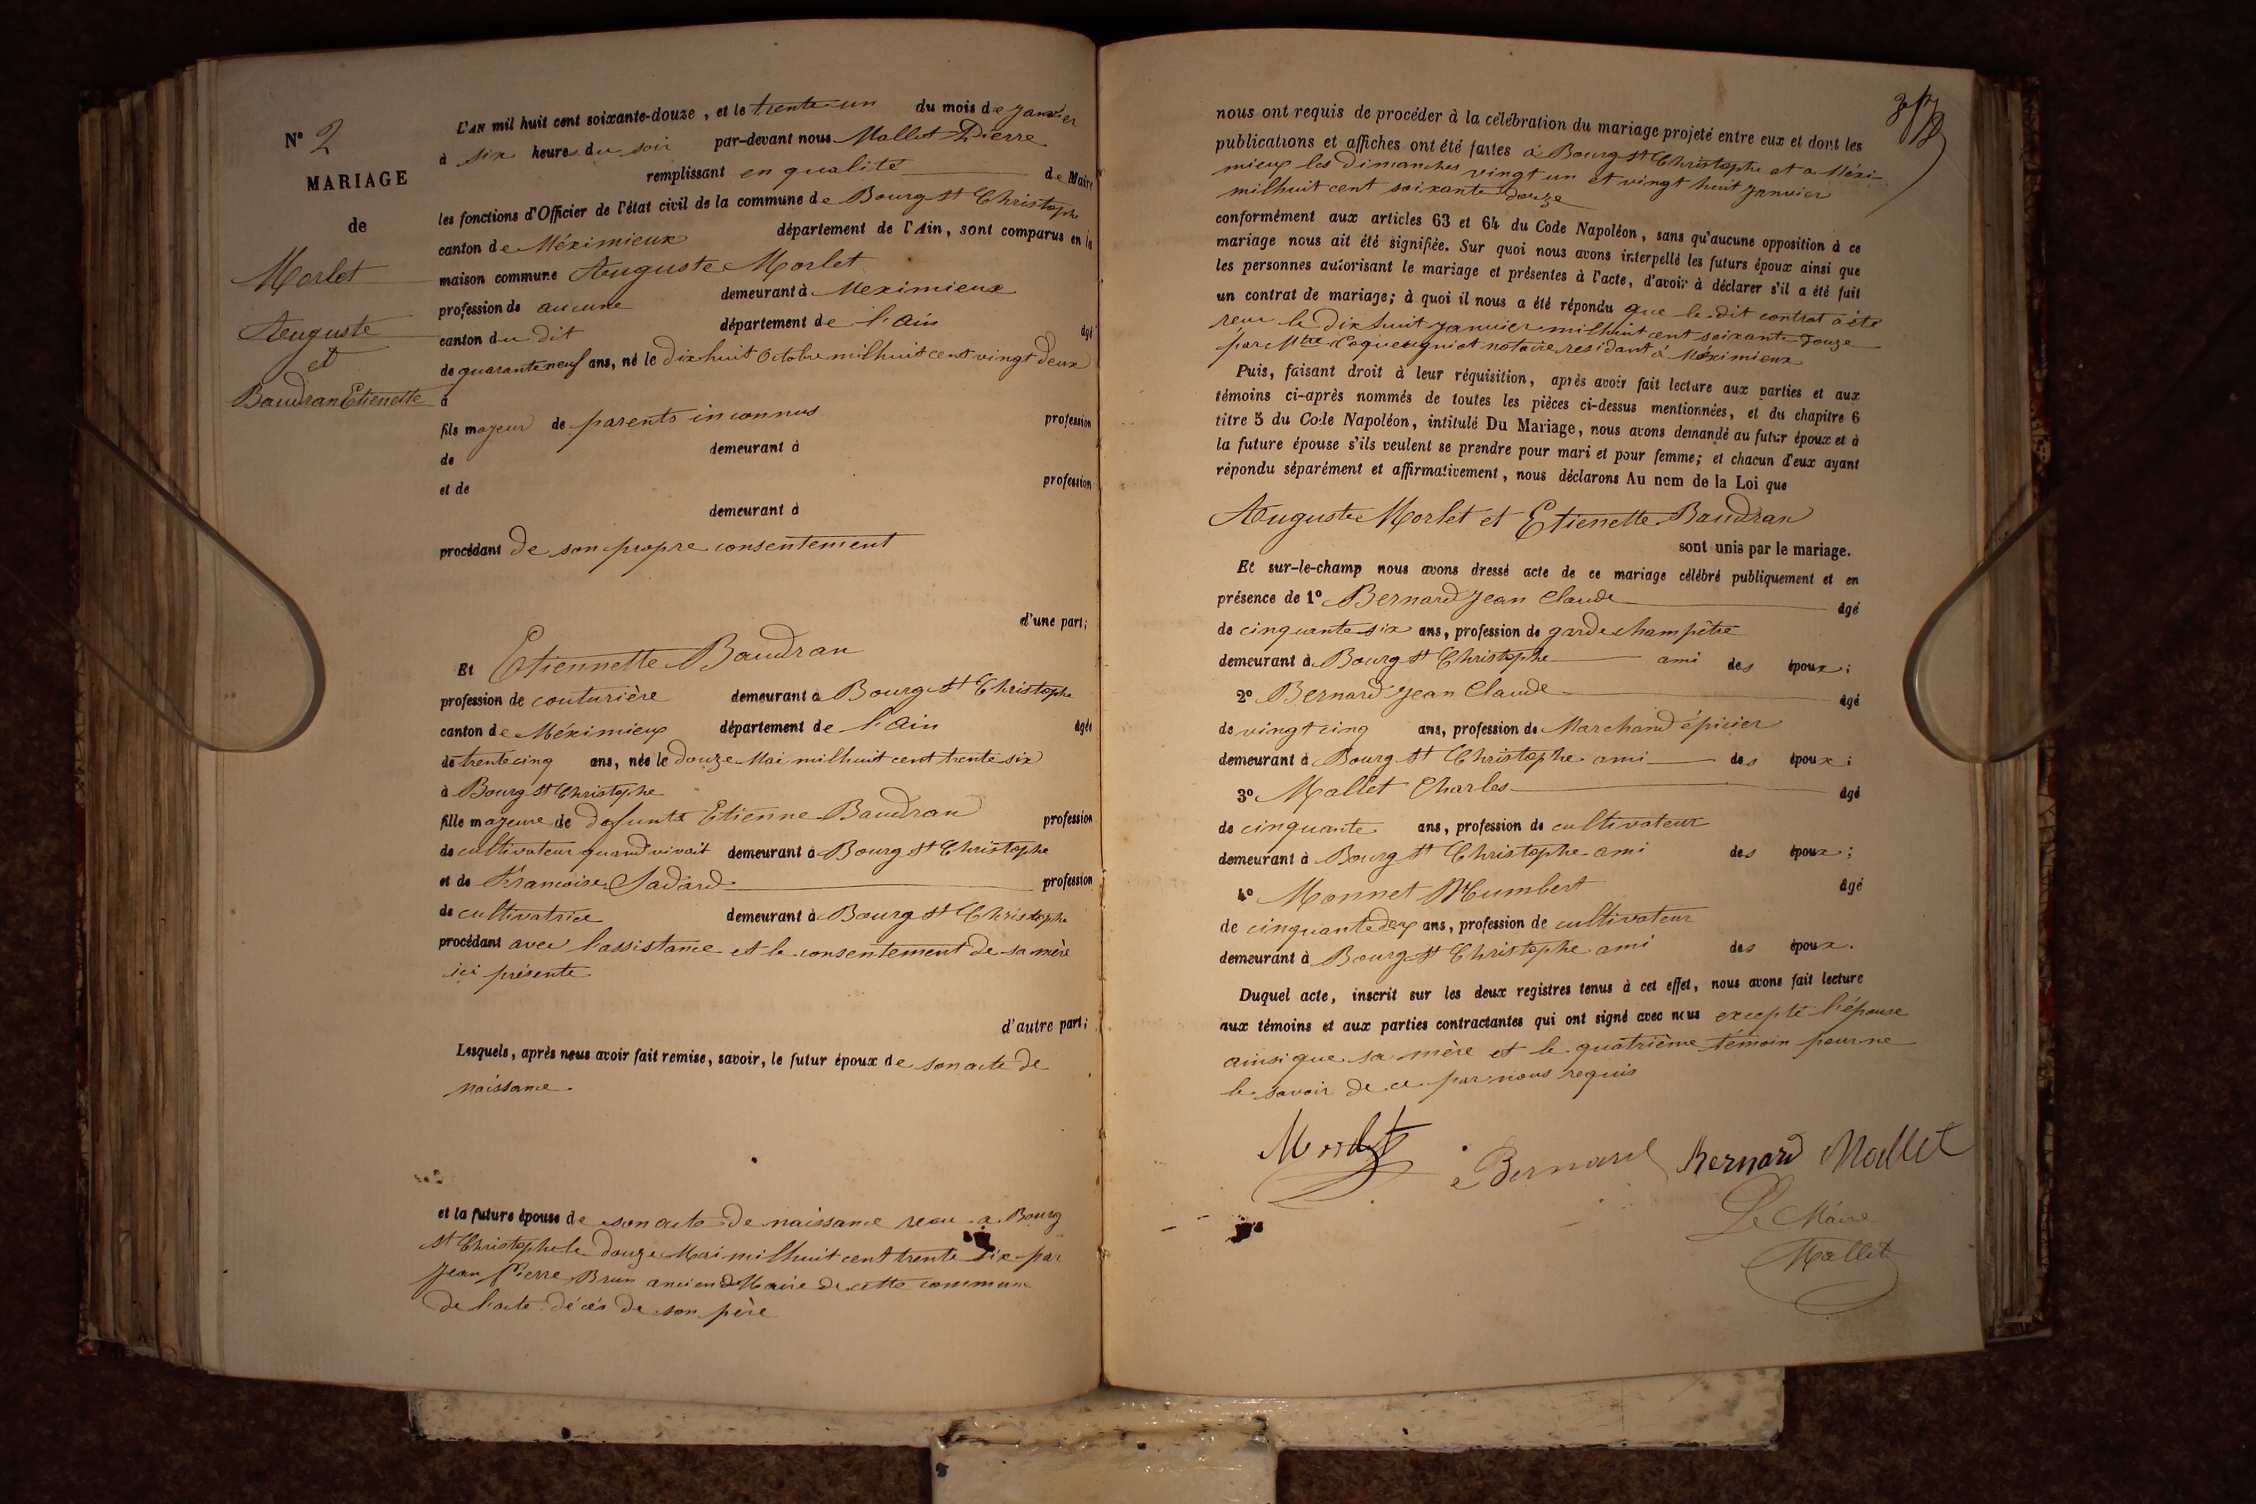 N° 2
MARIAGE
de
Morlet
Auguste
et
Baudran Etienette
L'AN mil huit cent soixante-douze, et le trente un du mois de Janvier
à six heures du soir par-devant nous Mallet Pierre
remplissant en qualité de Maire
les fonctions d'Officier de l'état civil de la commune de Bourg St Christophe
canton de Méximieux département de l'Ain, sont comparus en la
maison commune Auguste Morlet
profession de aucune demeurant à Meximieux
canton du dit département de l'Ain âgé
de quarante neuf ans, né le Dix huit Octobre mil huit cent vingt deux
à
fils majeur de parents inconnus profession
de demeurant à
et de profession
demeurant à
procédant de son propre consentement
d'une part;
Et Etiennette Baudran
profession de couturière demeurant à Bourg St Christophe
canton de Méximieux département de l'Ain âgée
de trente cinq ans, née le douze Mai mil huit cent trente six
à Bourg St Christophe
fille majeure de defunt Etienne Baudran profession
de cultivateur quand vivait demeurant à Bourg St Christophe
et de Francoise Sadard profession
de cultivatrice demeurant à Bourg St Christophe
procédant avec l'assistance et le consentement de sa mère
ici présente
d'autre part;
Lesquels, après nous avoir fait remise, savoir, le futur époux de son acte de
naissance
et la future épouse de son acte de naissance recu a Bourg
St Christophe le douze Mai mil huit cent trente six par
Jean Pierre Brun ancien Maire de cette commune
de l'acte décés de son père
nous ont requis de procéder à la célébration du mariage projeté entre eux et dont les
publications et affiches ont été faites à Bourg St Christophe et a Méxi-
mieux les Dimanches vingt un et vingt huit Janvier
mil huit cent soixante douze
conformément aux articles 63 et 64 du Code Napoléon, sans qu'aucune opposition à ce
mariage nous ait été signifiée. Sur quoi nous avons interpellé les futurs époux ainsi que
les personnes autorisant le mariage et présentes à l'acte, d'avoir à déclarer s'il a été fait
un contrat de mariage; à quoi il nous a été répondu que le dit contrat a été
recu le Dix huit Janvier mil huit cent soixante douze
par Mtre notaire residant à Méximieux
Puis, faisant droit à leur réquisition, après avoir fait lecture aux parties et aux
témoins ci-après nommés de toutes les pièces ci-dessus mentionnées, et du chapitre 6
titre 5 du Code Napoléon, intitulé Du Mariage, nous avons demandé au futur époux et à
la future épouse s'ils veulent se prendre pour mari et pour femme; et chacun d'eux ayant
répondu séparément et affirmativement, nous déclarons Au nom de la Loi que
Auguste Morlet et Etienette Baudran
sont unis par le mariage.
Et sur-le-champ nous avons dressé acte de ce mariage célébré publiquement et en
présence de 1° Bernard Jean Claude âgé
de cinquante six ans, profession de garde champêtre
demeurant à Bourg St Christophe ami des époux;
2° Bernard Jean Claude âgé
de vingt cinq ans, profession de Marchand épicier
demeurant à Bourg St Christophe ami des époux;
3° Mallet Charles âgé
de cinquante ans, profession de cultivateur
demeurant à Bourg St Christophe ami des époux;
4° Monnet Humbert âgé
de cinquante deux ans, profession de cultivateur
demeurant à Bourg St Christophe ami des époux.
Duquel acte, inscrit sur les deux registres tenus à cet effet, nous avons fait lecture
aux témoins et aux parties contractantes qui ont signé avec nous excepté l'épouse
ainsi que sa mère et le quatrième témoin pour ne
le savoir de ce par nous requis
Morlet Bernard Bernard Mallet
Le Maire
Mallet